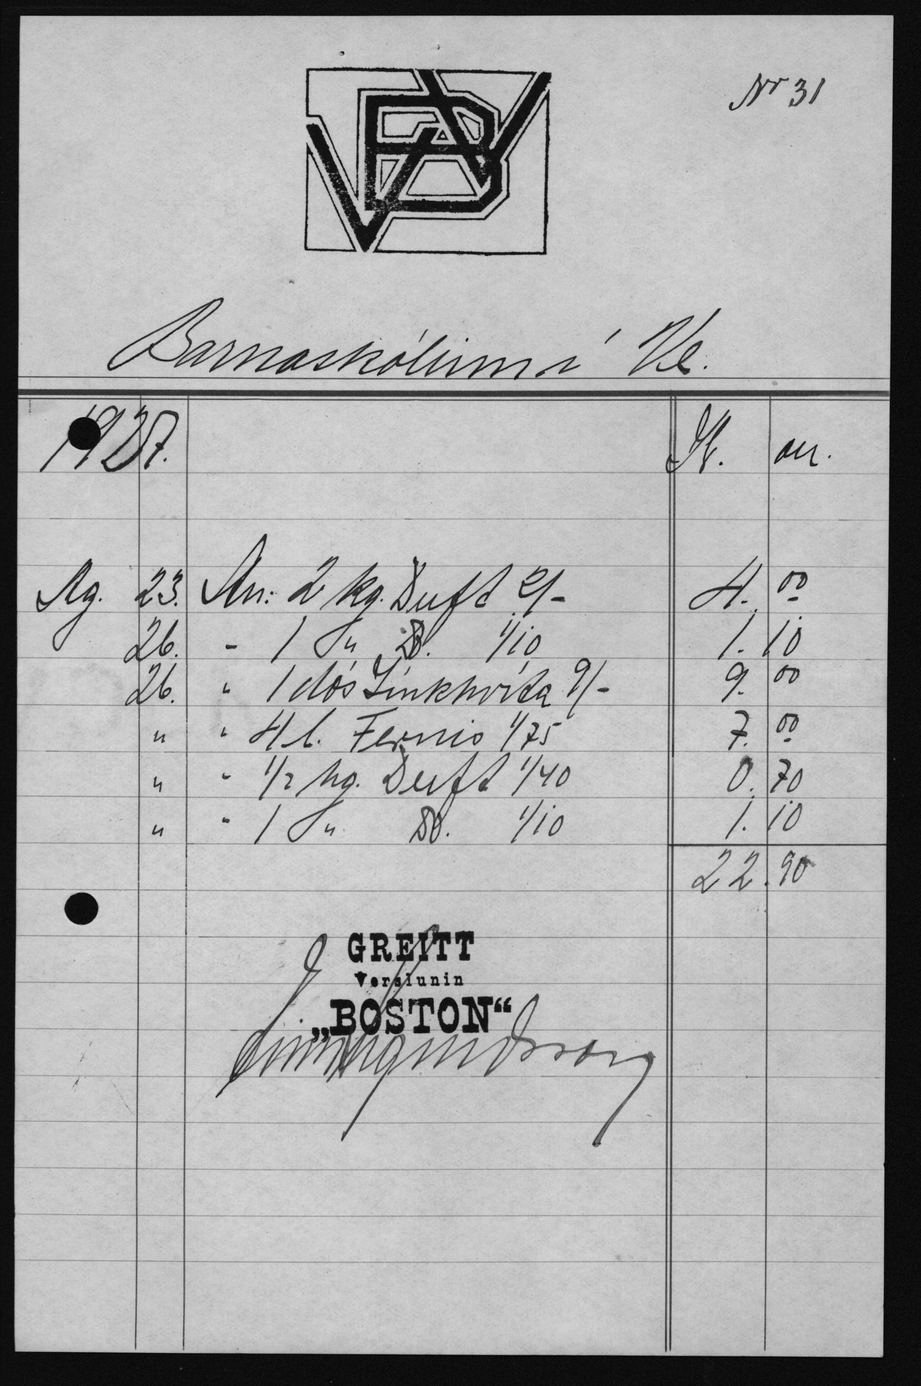 Nr 31
Barnaskólinn í Ve.
1927. Kr. aur.
Ag. 23. An: 2 kg. Duft 2/- 4. 00
26. - 1 " 1/10 1. 10
26. " 1 dós Zinkhvíta 9/- 9. 00
" " 4 l. Fernis 1/75 7. 00
" " 1/2 kg. Duft 1/40 0. 70
" " 1 " Do. 1/10 1. 10
22. 90
GREITT
Verslunin
„BOSTON“